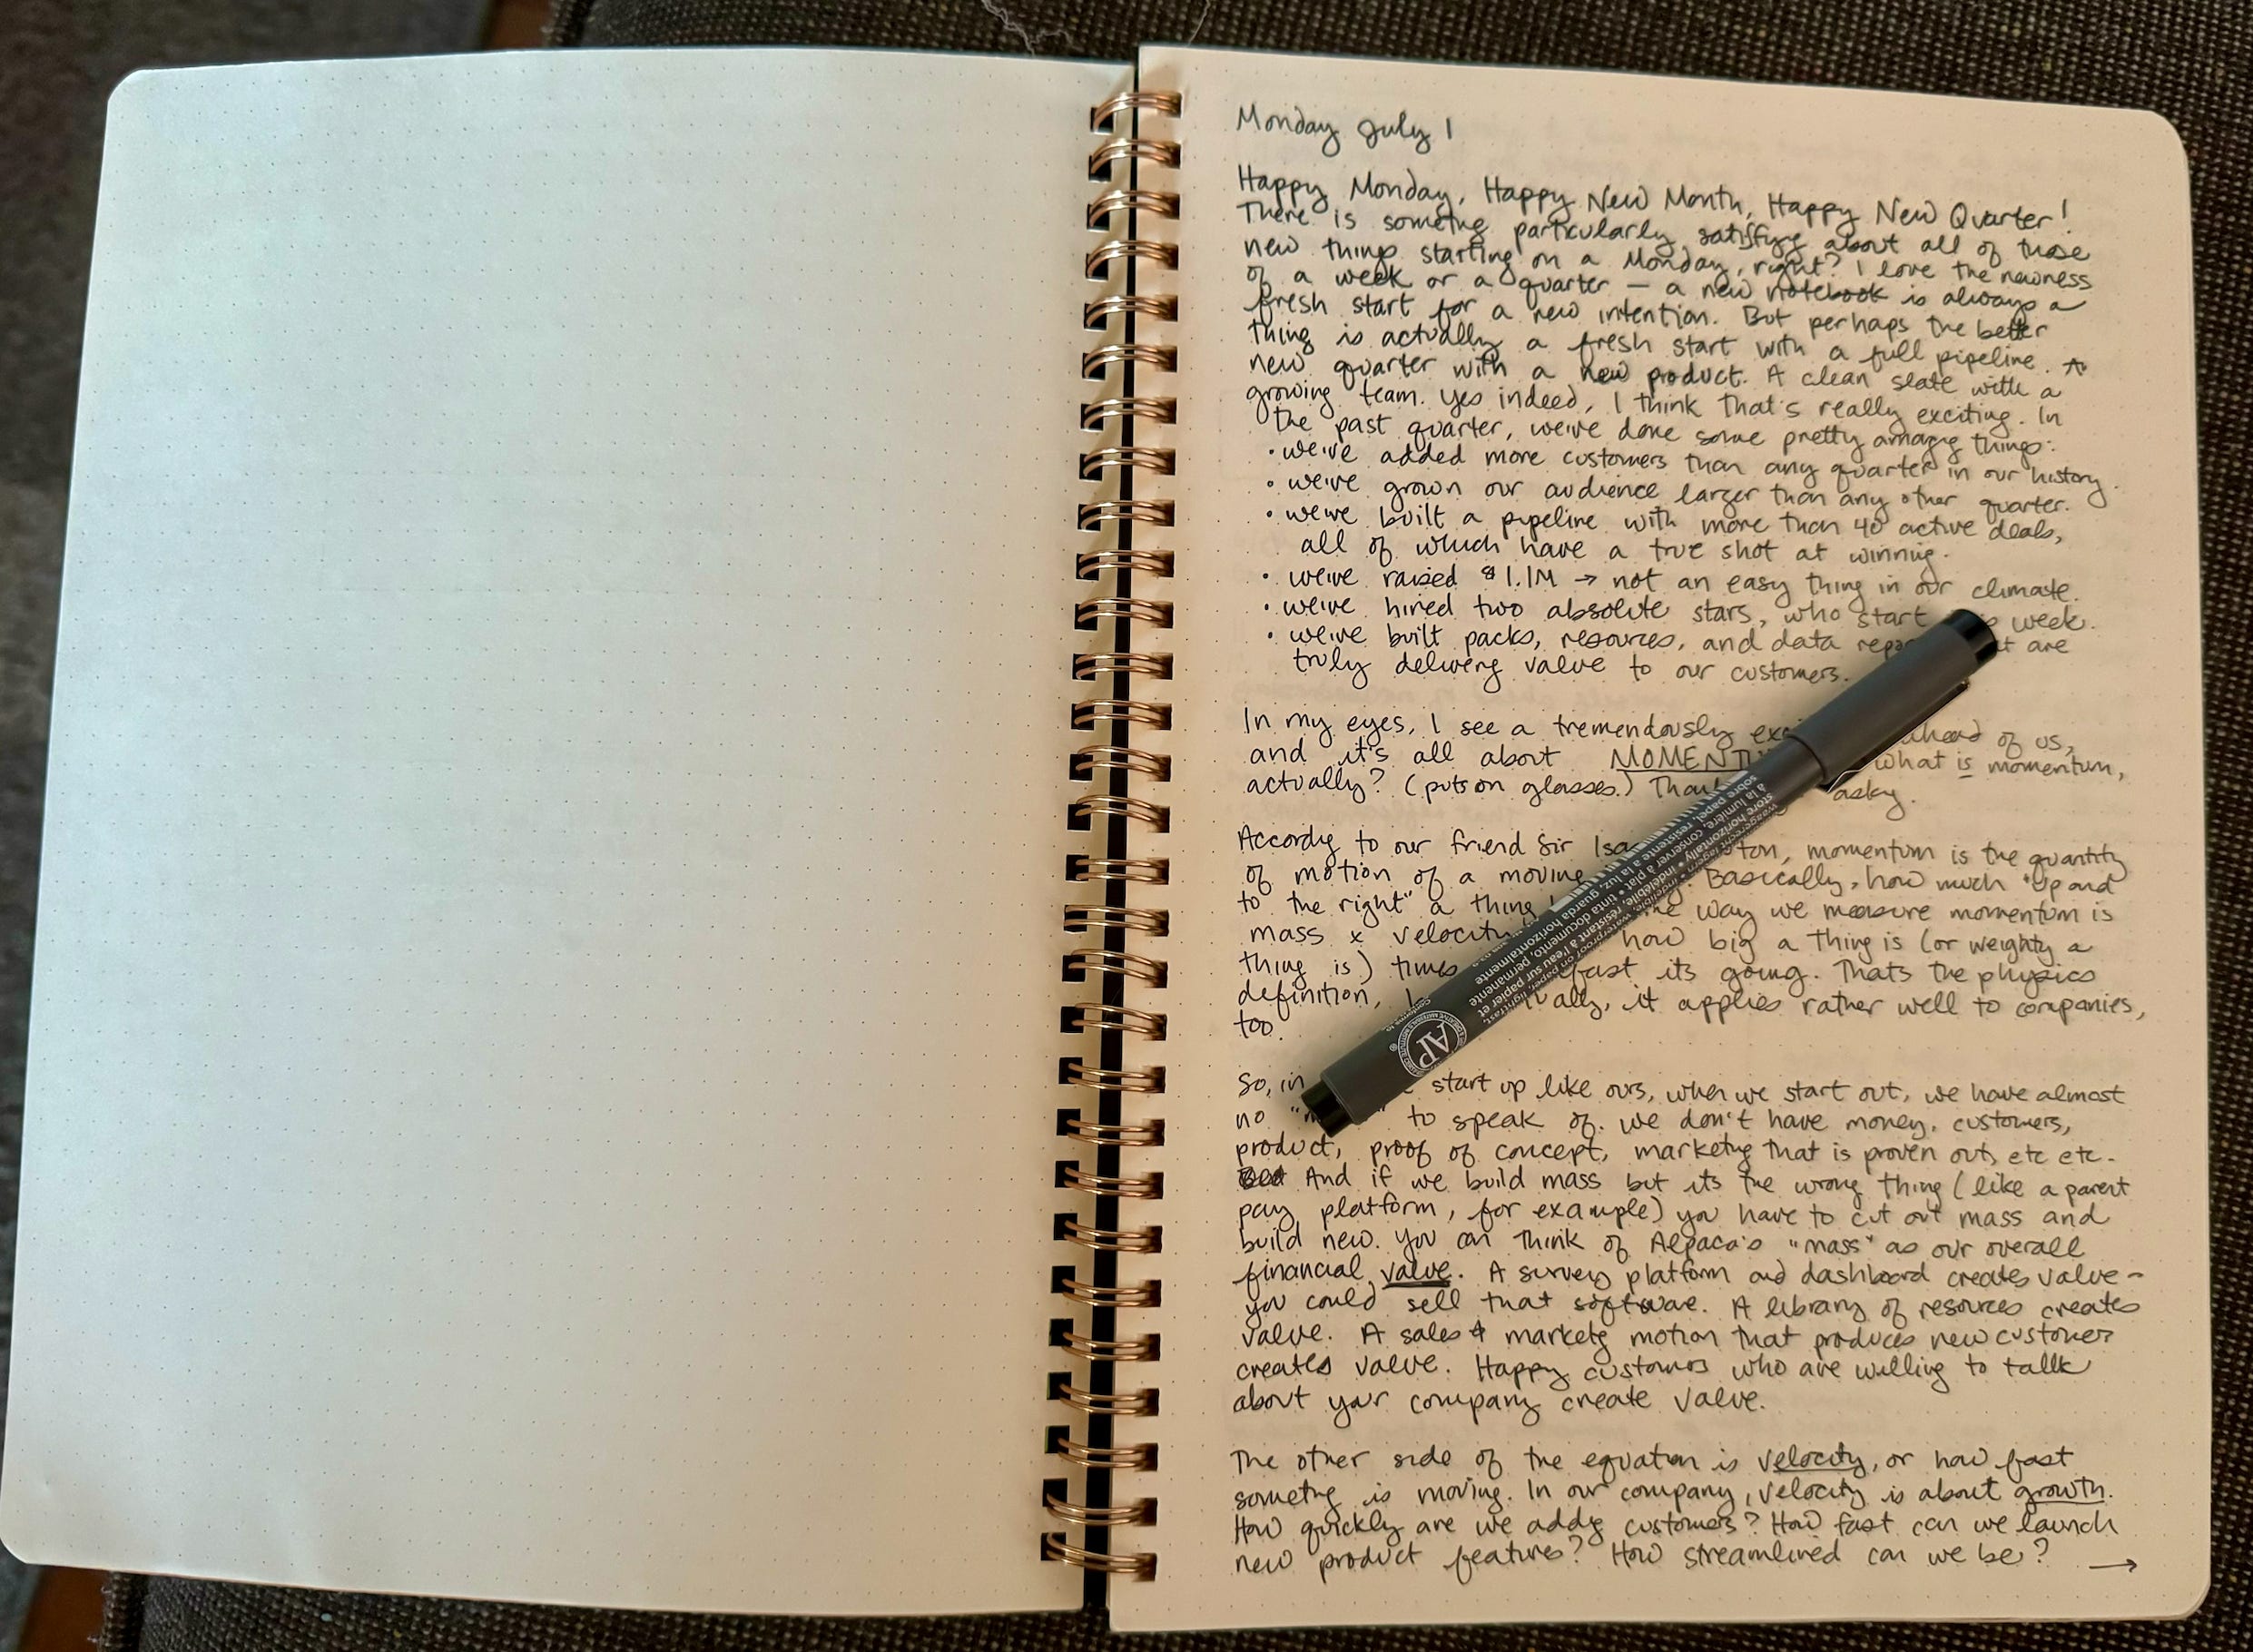 Monday July 1
Happy Monday, Happy New Month, Happy New Quarter!
There is something particularly satisfying about all of those
new things starting on a Monday, right? I love the newness
of a week or a quarter — a new notebook is always a
fresh start for a new intention. But perhaps the better
thing is actually a fresh start with a full pipeline. A
new quarter with a new product. A clean slate with a
growing team. Yes indeed, I think that's really exciting. In
the past quarter, we've done some pretty amazing things:
• we've added more customers than any quarter in our history.
• we've grown our audience larger than any other quarter.
• we've built a pipeline with more than 40 active deals,
all of which have a true shot at winning.
• we've raised $1.1M → not an easy thing in our climate.
• we've hired two absolute stars, who start week.
• we've built packs, resources, and data are
truly delivering value to our customers.
In my eyes, I see a tremendously ahead of us,
and it's all about MOMENTU what is momentum,
actually? (puts on glasses.) asking.
According to our friend Sir Isa ton, momentum is the quantity
of motion of a moving Basically, how much "up and
to the right" a thing the way we measure momentum is
mass x velocity how big a thing is (or weighty a
thing is) times fast its going. Thats the physics
definition, it applies rather well to companies,
too.
So, in start up like ours, when we start out, we have almost
no to speak of. We don't have money, customers,
product, proof of concept, marketing that is proven out, etc etc.
And if we build mass but its the wrong thing (like a parent
pay platform, for example) you have to cut out mass and
build new. You can think of Alpaca's "mass" as our overall
financial value. A survey platform and dashboard creates value -
you could sell that software. A library of resources creates
value. A sales & marketing motion that produces new customer
creates value. Happy customers who are willing to talk
about your company create value.
The other side of the equation is velocity, or how fast
something is moving. In our company, velocity is about growth.
How quickly are we adding customers? How fast can we launch
new product features? How streamlined can we be? →
waterproof on paper, lightfast
indélébile, résistant à l'eau sur papier et
à la lumière, conserver à plat • tinta documento, permanente
sobre papel, resistente a la luz, guarda horizontalmente
AP